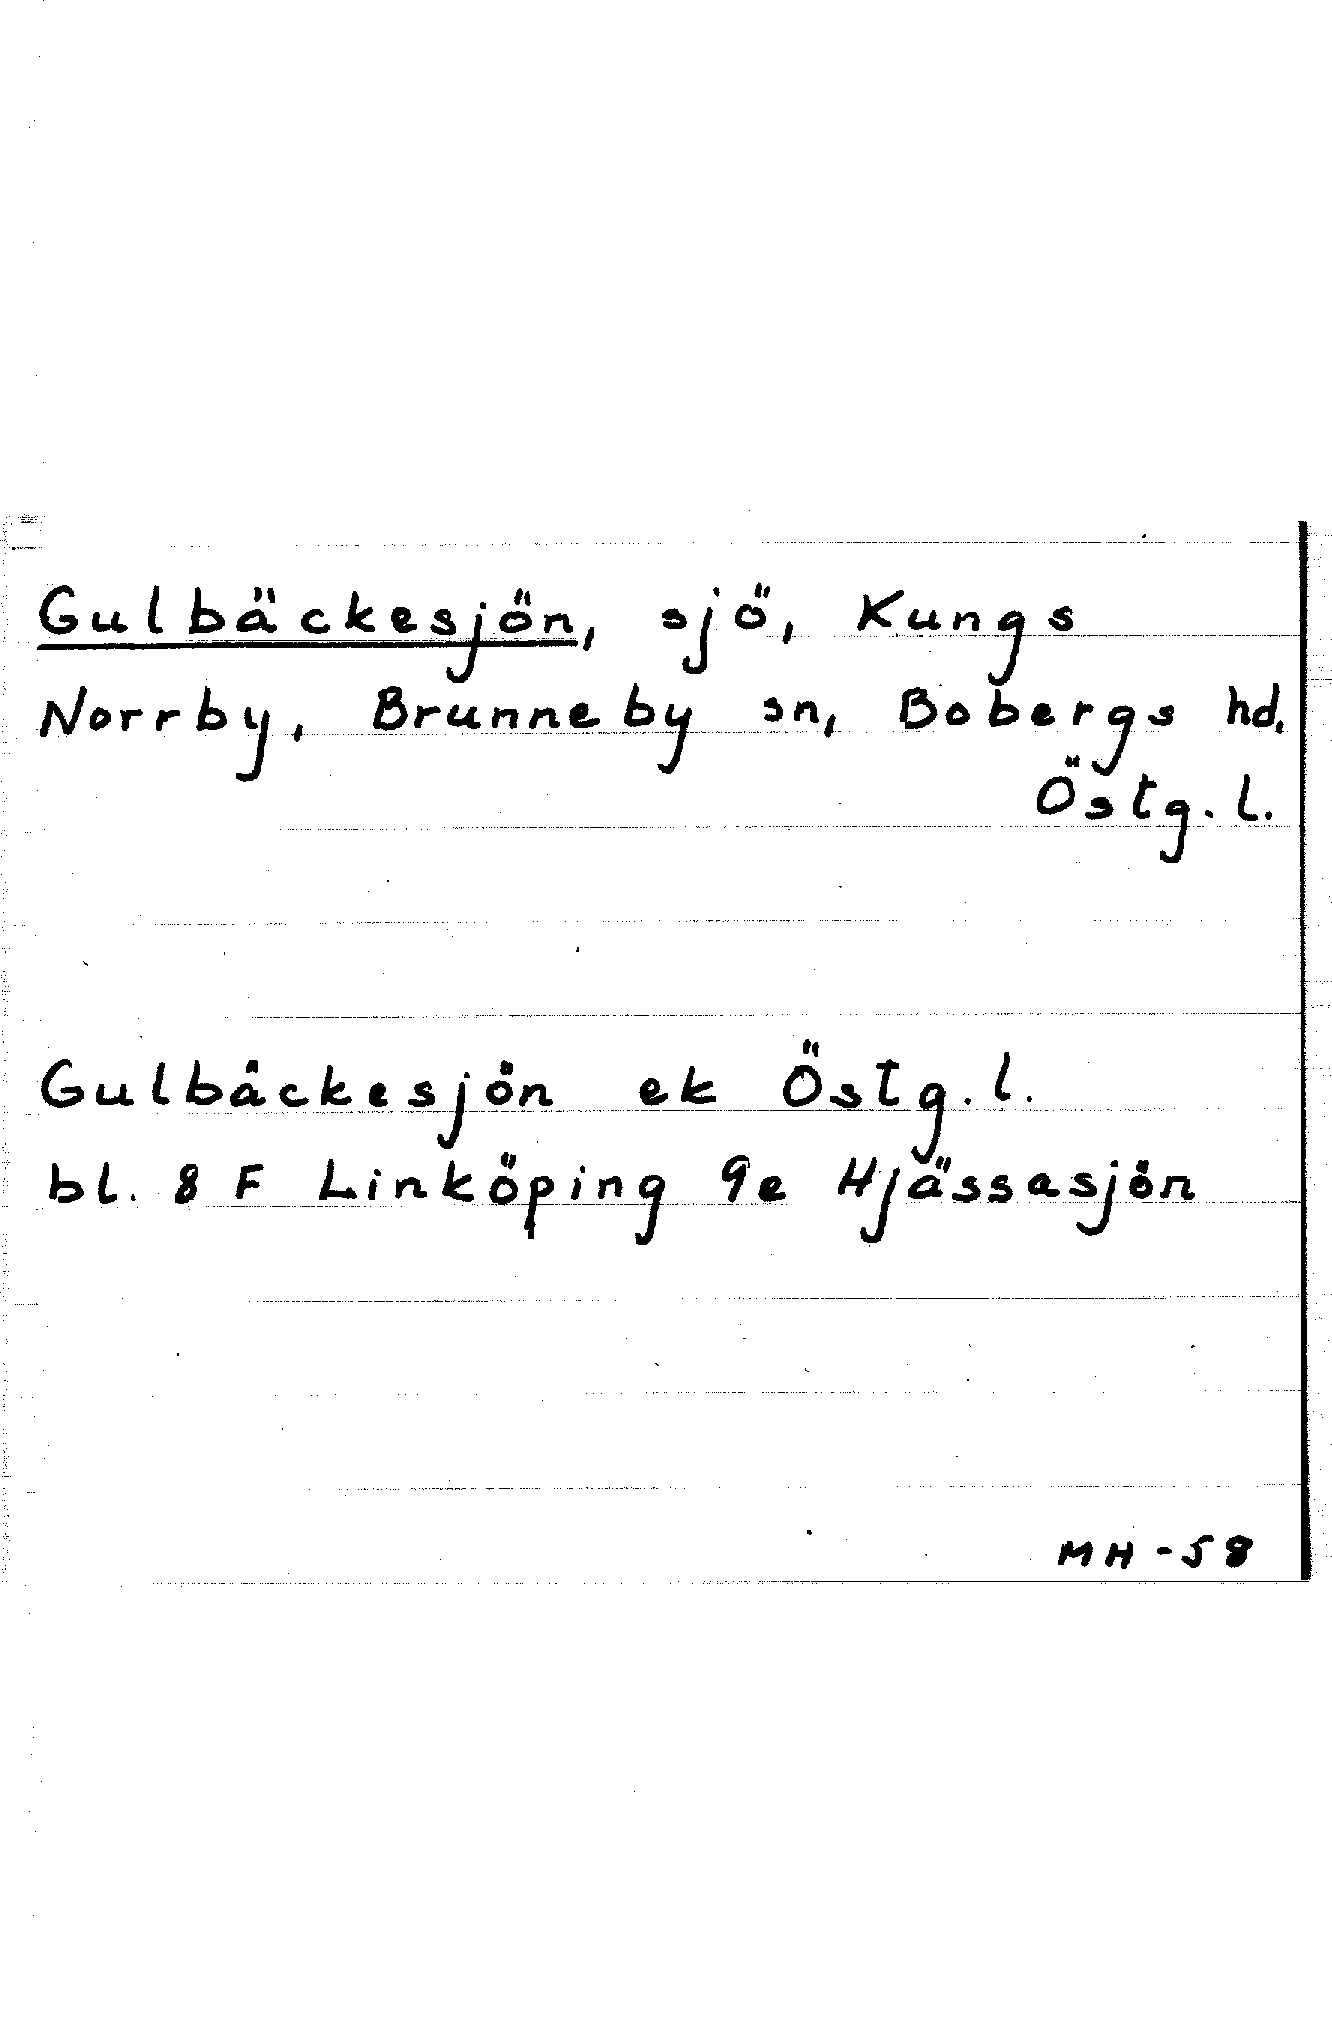 Gulbäckesjön, sjö, Kungs
Norrby, Brunneby sn, Bobergs hd,
Östg. l.
Gulbäckesjön ek Östg. l.
bl. 8 F Linköping 9e Hjässasjön
MH-58